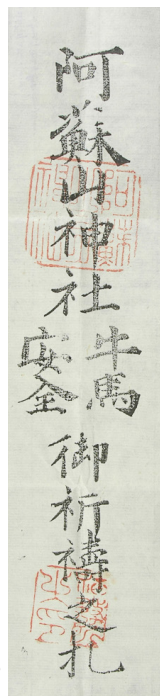 阿蘇山神社
牛馬
安全
御祈禱之札